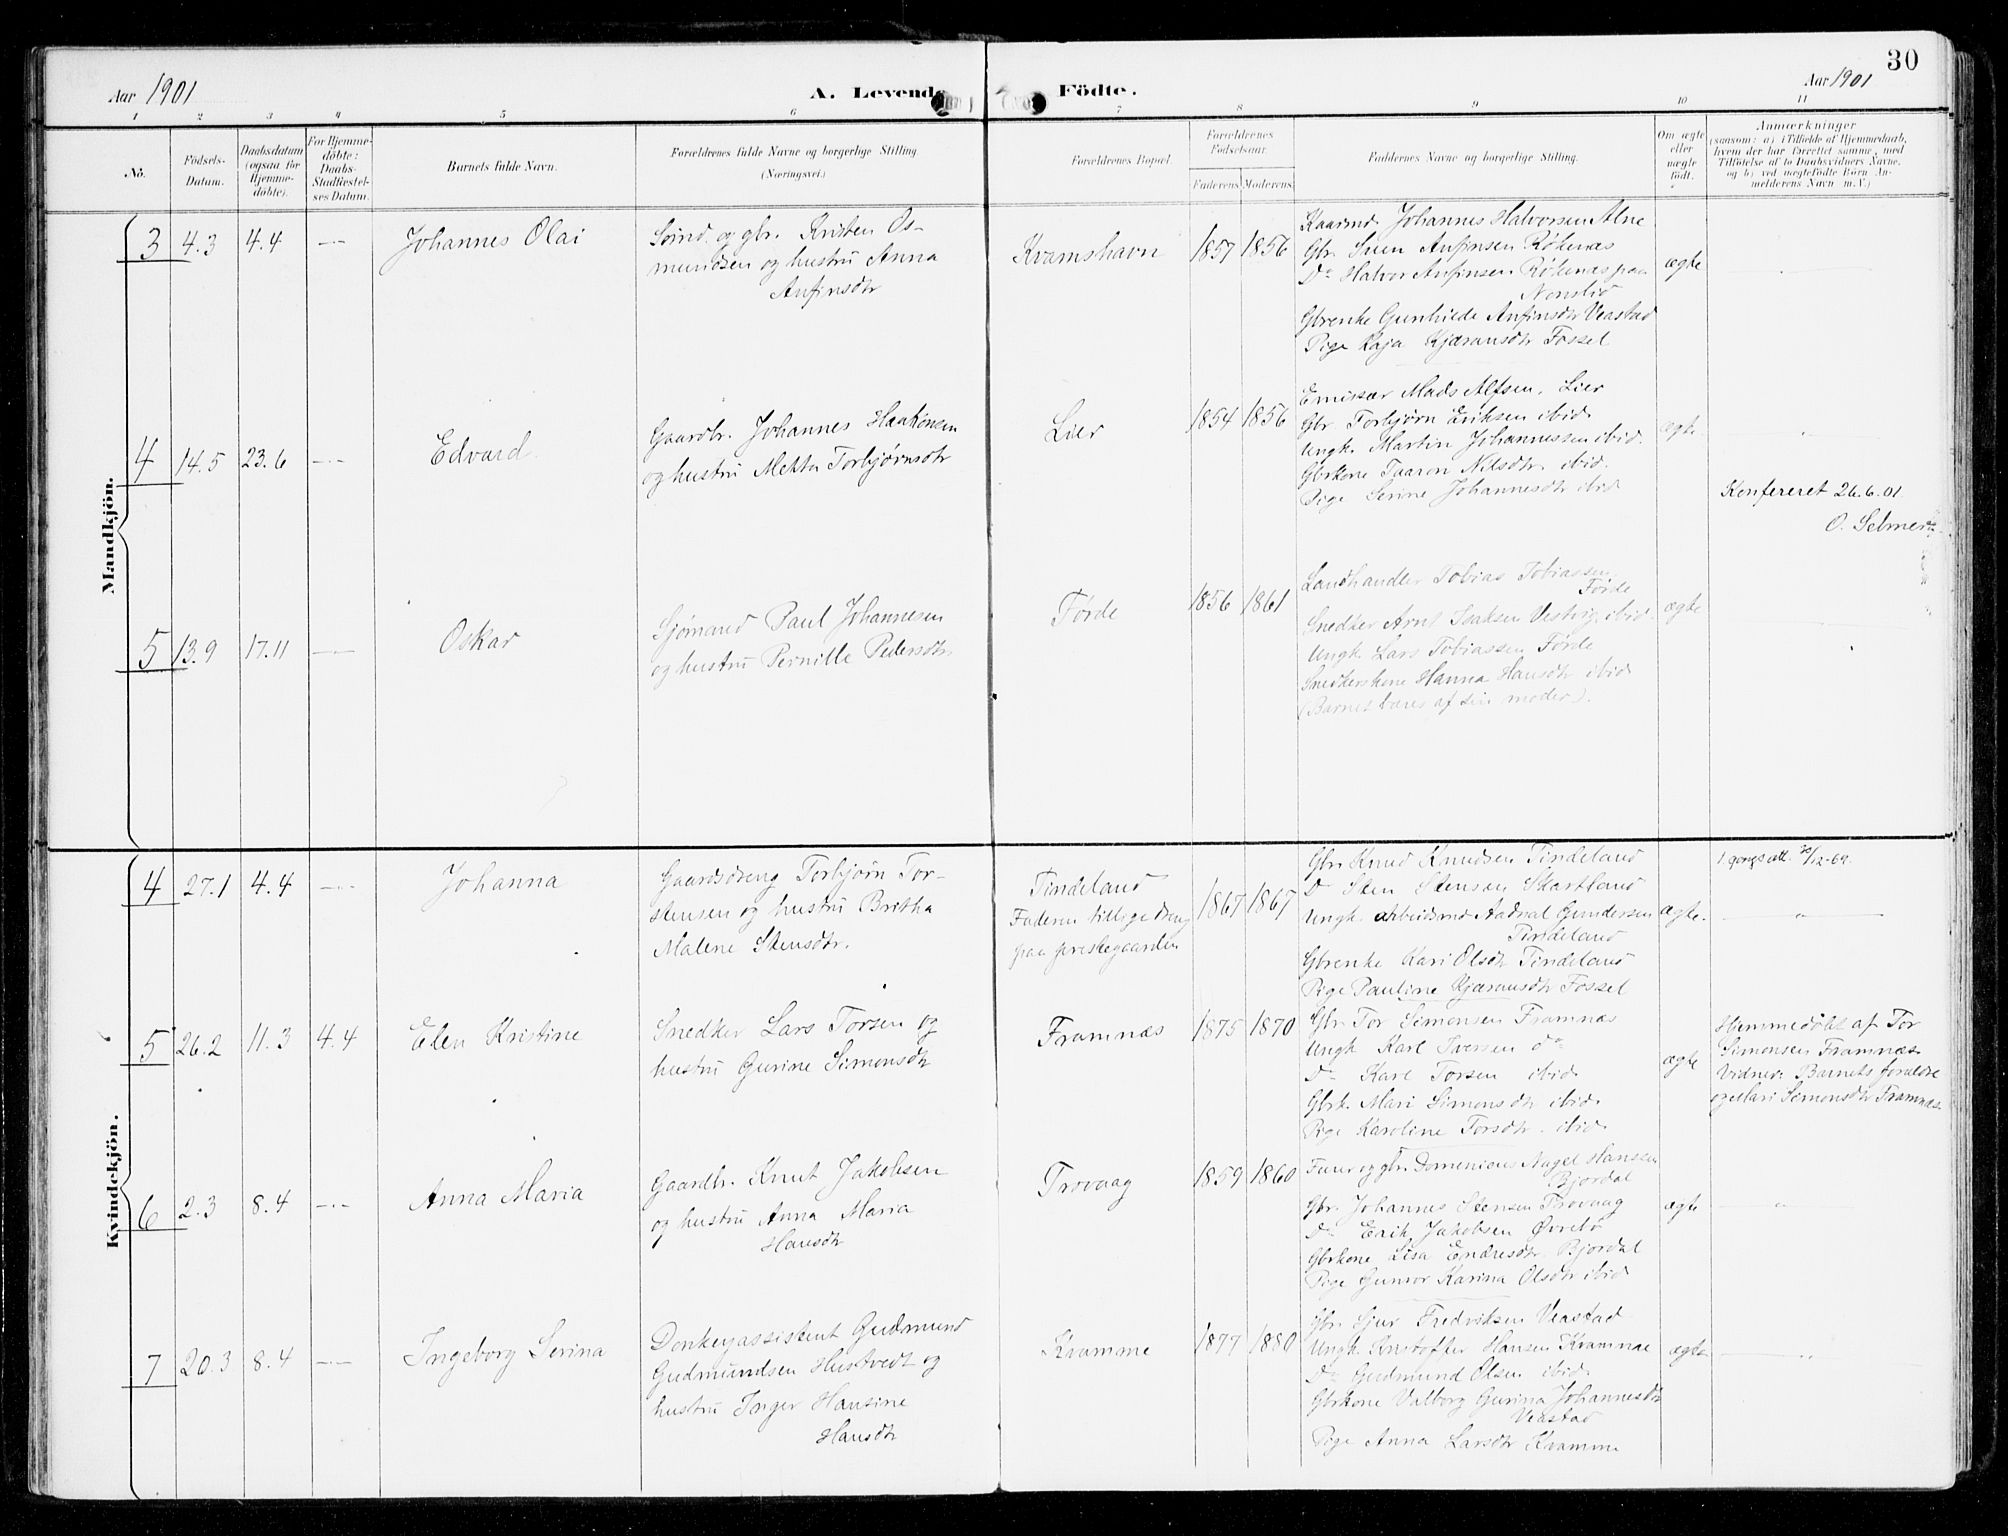 30
Aar 1901
A. Levende
Födte.
Aar 1901
1 2 3 4 5 6 7 8 9 10 11
No.
Födsels-
Datum.
Daabsdatum
(ogsaa for
Hjemme-
döbte).
For Hjemme-
döbte:
Daabs-
Stadfæstel-
ses Datum.
Barnets fulde Navn.
Forældrenes fulde Navne og borgerlige Stilling.
(Næringsvei.)
Forældrenes Bopæl.
Forældrenes
Födselsaar.
Faderens. Moderens.
Faddernes Navne og borgerlige Stilling.
Om ægte
eller
uægte
födt.
Anmærkninger
(saasom: a) i Tilfælde af Hjemmedaab,
hvem der har forrettet samme, med
Tilföielse af to Daabsvidners Navne.
og b) ved uægtefödte Börn An-
melderens Navn m.V.)
Mandkjön.
3
4.3
4.4
Johannes Olai
og gbr. Kristen Os-
mundsen og hustru Anna
Anfinsdtr
Kvamshavn
1857
1856
Kaarmd Johannes Halvorsen Alne
Gbr. Sven Anfinsen Rökenæs
Do Halvor Anfinsen Rökenæs paa
Gbrenke Gunhilde Anfinsdtr Veastad
Pige Kaja Kjæransdtr Fossel
ægte
4
14.5
23.6
Edvard
Gaardbr. Johannes Haakonsen
og hustru Metta Torbjørnsdtr
Lier
1854
1856
Emissær Mads Alfsen, Lier
Gbr Torbjörn Eriksen ibid.
Ungk. Martin Johannessen ibid.
Gbrkone Taaron Nilsdtr. ibid.
Pige Serine Johannesdtr ibid
ægte
Konfereret 26.6.01
O. Selmer
5
13.9
17.11
Oskar
Sjømand Paul Johannesen
og hustru Pernille Pedersdtr.
Førde
1856
1861
Landhandler Tobias Tobiassen,
Førde
Snedker Arnt Isaksen Vestvig, ibid.
Ungk. Lars Tobiassen Førde
Snedkerskone Hanna Hansdtr ibid
(Barnet bares af sin moder).
ægte
Kvindekjön.
4
27.1
4.4
Johanna
Gaardsdreng Torbjørn Tor-
stensen og hustru Britha
Malene Stensdtr.
Tindeland
Faderen tillige dreng
paa prestegaarden
1867
1867
Gbr. Knud Knudsen Tindeland
Do Sten Stensen Skartland
Ungk. arbeidsmd Aadnal Gundersen
Tindeland
Gbrenke Kari Olsdtr Tindeland
Pige Pauline Kjæransdtr Fossel
ægte.
1 gangs att. 30/12-69.
5
26.2
11.3
4.4
Elen Kristine
Snedker Lars Torsen og
hustru Gurine Simonsdtr
Framnæs
1875
1870
Gbr. Tor Simonsen Framnæs
Ungk Karl Iversen do
Do Karl Torsen ibid
Gbrk. Mari Simonsdtr ibid.
Pige Karoline Torsdtr. ibid
ægte
Hjemmedøbt af Tor
Simonsen Framnæs
Vidner: Barnets forældre
og Mari Simonsdtr Framnæs.
6
2.3
8.4
Anna Maria
Gaardbr. Knut Jakobsen
og hustru Anna Maria
Hansdtr
Trovaag
1859
1860
og gbr. Domenicus Nagel Hansen
Bjordal
Gbr. Johannes Stensen Trovaag
Do Erik Jakobsen Øvrebø
Gbrkone Lisa Endresdtr. Bjordal
Pige Gunvor Karina Olsdtr ibid
ægte
7
20.3
8.4
Ingeborg Serina
Donkeyassistent Gudmund
Gudmundsen Hustvedt og
hustru Inger Hansine
Hansdtr
Kvamme
1877
1880
Gbr. Sjur Fredriksen Veastad
Ungk. Kristoffer Hansen Kvamme
Do Gudmund Olsen ibid.
Gbrkone Valborg Gurina Johannesdtr
Veastad
Pige Anna Larsdtr Kvamme
ægte